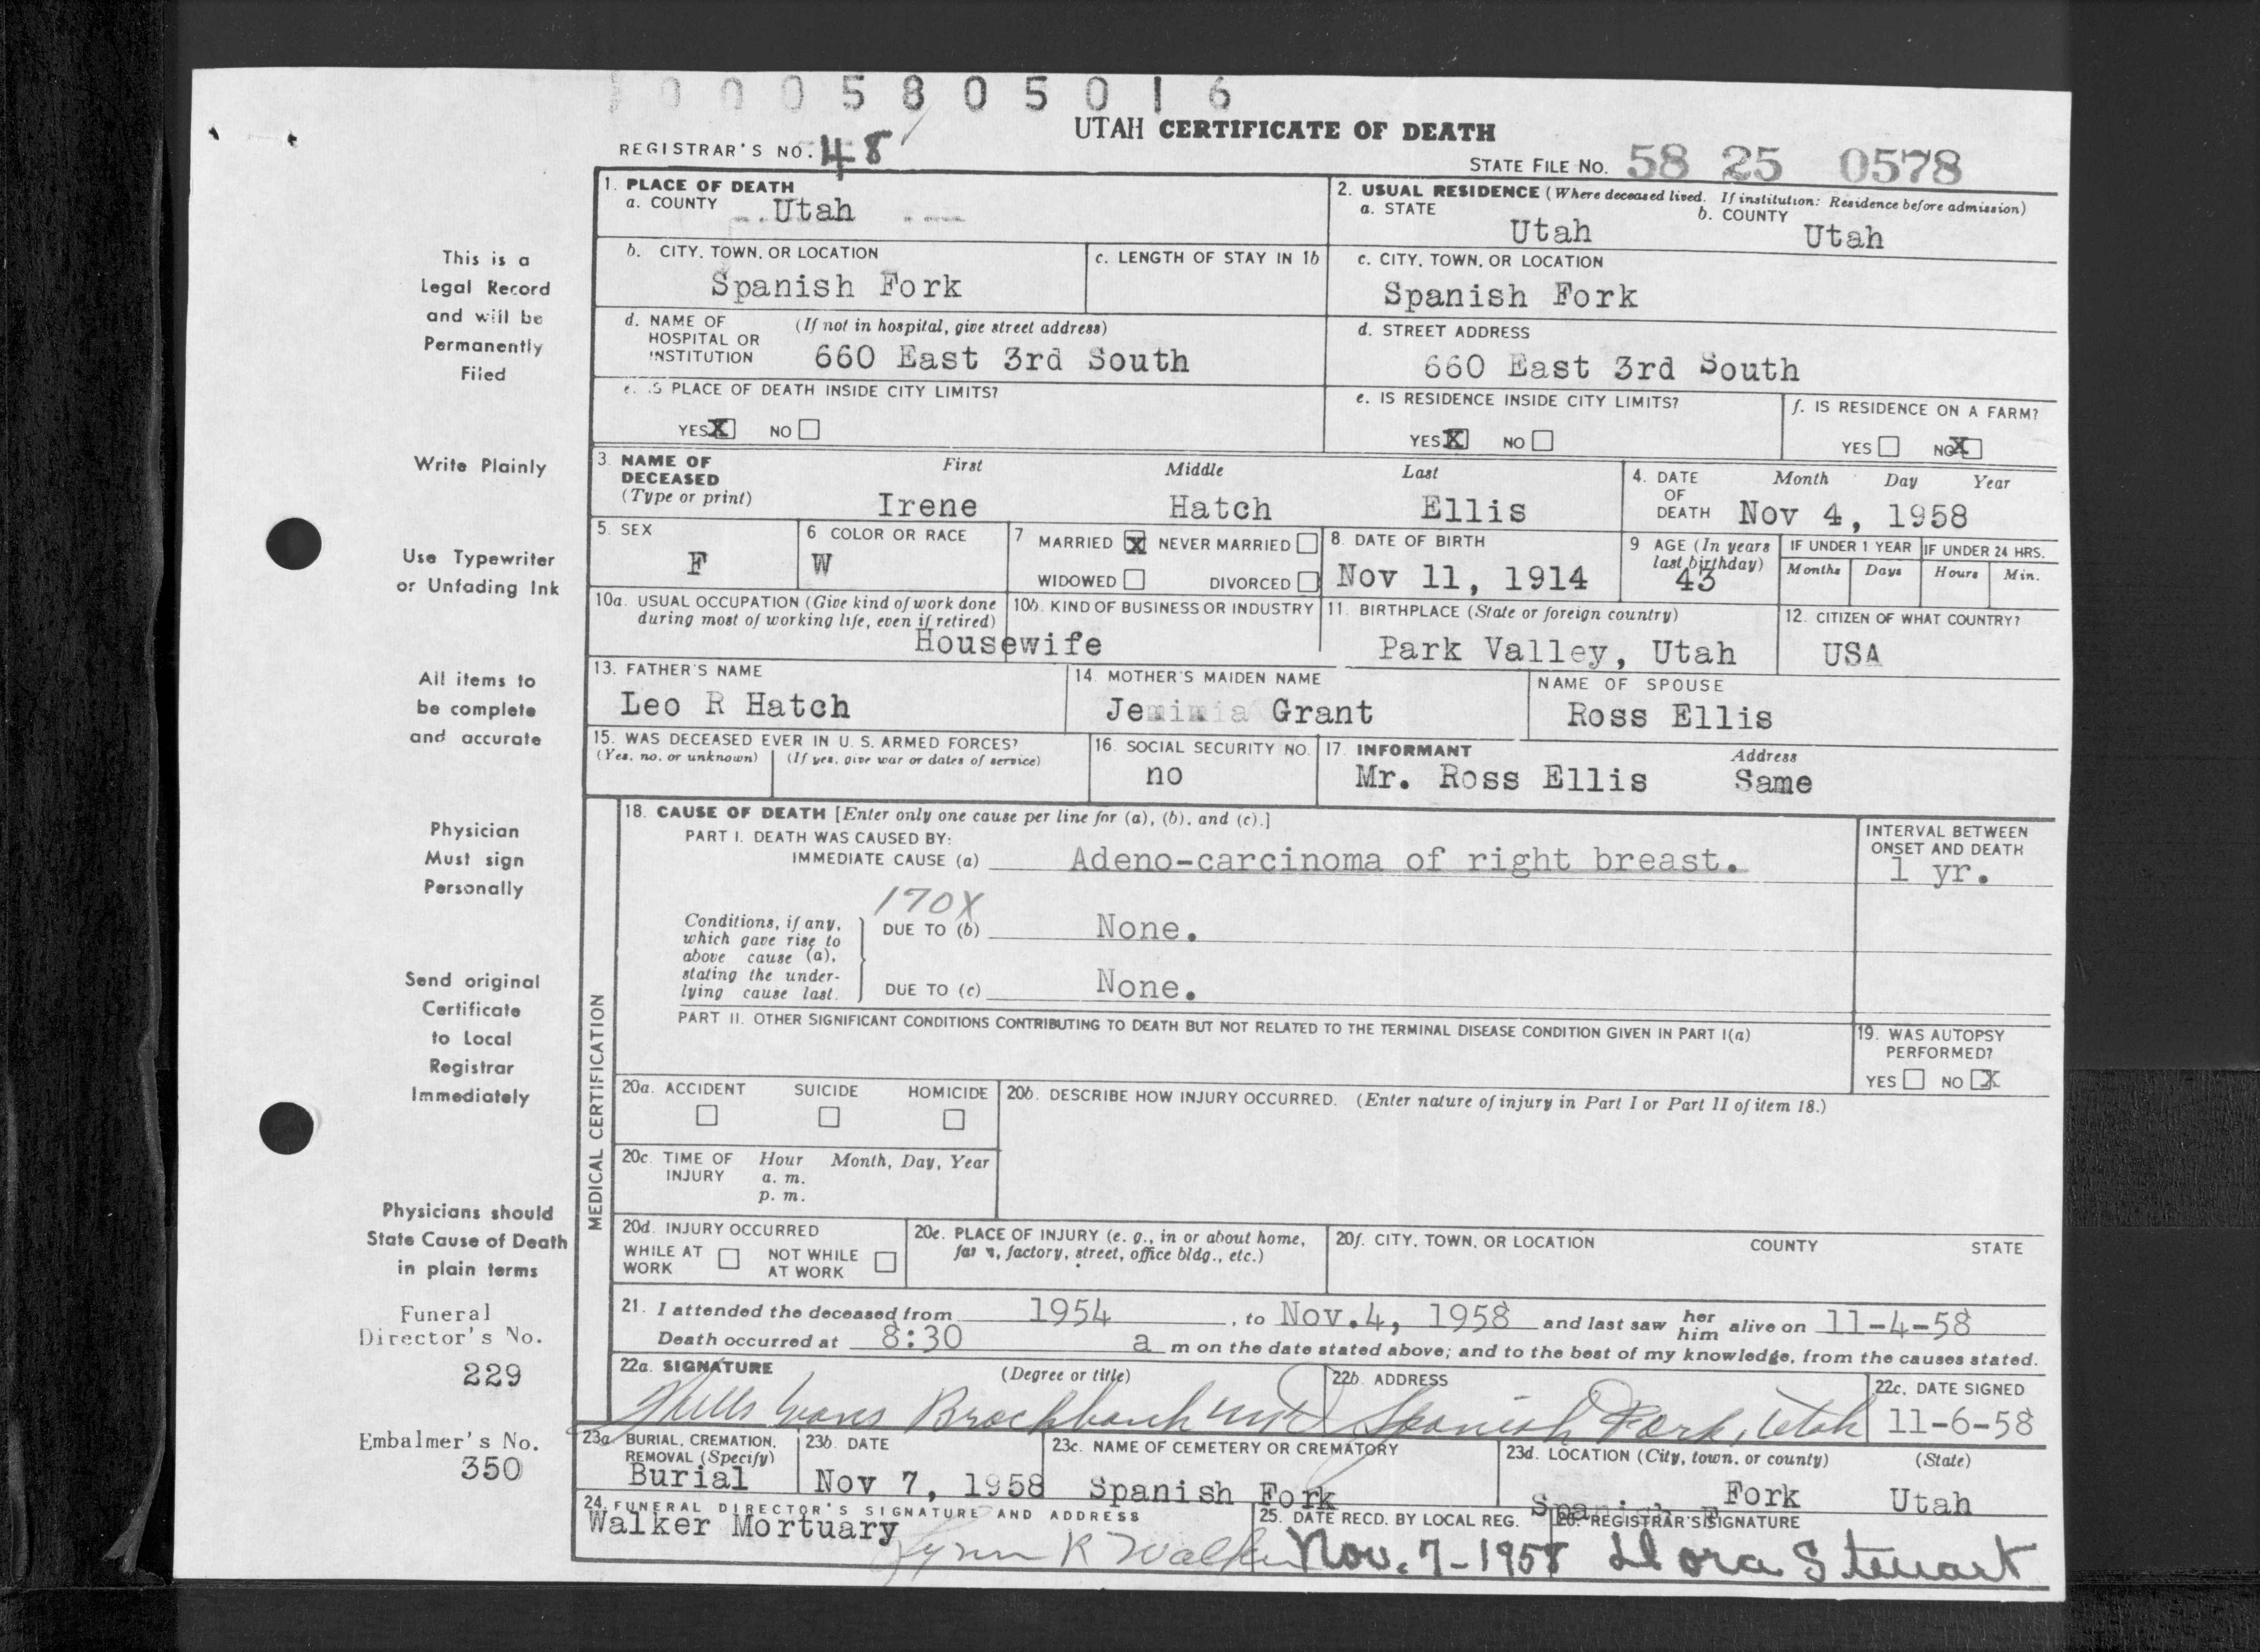 0005805016
UTAH CERTIFICATE OF DEATH
REGISTRAR'S NO. 48
STATE FILE NO. 58 25 0578
1. PLACE OF DEATH
a. COUNTY Utah
2. USUAL RESIDENCE (Where deceased lived. If institution: Residence before admission)
a. STATE Utah b. COUNTY Utah
b. CITY, TOWN, OR LOCATION Spanish Fork
c. LENGTH OF STAY IN 1b
c. CITY, TOWN, OR LOCATION Spanish Fork
d. NAME OF HOSPITAL OR INSTITUTION (If not in hospital, give street address) 660 East 3rd South
d. STREET ADDRESS 660 East 3rd South
e. IS PLACE OF DEATH INSIDE CITY LIMITS?
YES X NO
e. IS RESIDENCE INSIDE CITY LIMITS?
YES X NO
f. IS RESIDENCE ON A FARM?
YES NO X
3. NAME OF DECEASED (Type or print)
First Middle Last
Irene Hatch Ellis
4. DATE OF DEATH Month Day Year
Nov 4, 1958
5. SEX F
6 COLOR OR RACE W
7 MARRIED X NEVER MARRIED
WIDOWED DIVORCED
8. DATE OF BIRTH Nov 11, 1914
9 AGE (In years last birthday) 43
IF UNDER 1 YEAR Months Days
IF UNDER 24 HRS. Hours Min.
10a. USUAL OCCUPATION (Give kind of work done during most of working life, even if retired)
10b. KIND OF BUSINESS OR INDUSTRY
Housewife
11. BIRTHPLACE (State or foreign country) Park Valley, Utah
12. CITIZEN OF WHAT COUNTRY? USA
13. FATHER'S NAME Leo R Hatch
14. MOTHER'S MAIDEN NAME Jemimia Grant
NAME OF SPOUSE Ross Ellis
15. WAS DECEASED EVER IN U. S. ARMED FORCES?
(Yes, no, or unknown) (If yes, give war or dates of service)
16. SOCIAL SECURITY NO. no
17. INFORMANT Mr. Ross Ellis
Address Same
MEDICAL CERTIFICATION
18. CAUSE OF DEATH [Enter only one cause per line for (a), (b), and (c).]
PART I. DEATH WAS CAUSED BY:
IMMEDIATE CAUSE (a) Adeno-carcinoma of right breast.
INTERVAL BETWEEN ONSET AND DEATH
1 yr.
170X
Conditions, if any, which gave rise to above cause (a), stating the underlying cause last.
DUE TO (b) None.
DUE TO (c) None.
PART II. OTHER SIGNIFICANT CONDITIONS CONTRIBUTING TO DEATH BUT NOT RELATED TO THE TERMINAL DISEASE CONDITION GIVEN IN PART I(a)
19. WAS AUTOPSY PERFORMED?
YES NO X
20a. ACCIDENT SUICIDE HOMICIDE
20b. DESCRIBE HOW INJURY OCCURRED. (Enter nature of injury in Part I or Part II of item 18.)
20c. TIME OF INJURY Hour Month, Day, Year
a. m.
p. m.
20d. INJURY OCCURRED
WHILE AT WORK NOT WHILE AT WORK
20e. PLACE OF INJURY (e. g., in or about home, farm, factory, street, office bldg., etc.)
20f. CITY, TOWN, OR LOCATION COUNTY STATE
21. I attended the deceased from 1954, to Nov.4, 1958 and last saw her him alive on 11-4-58
Death occurred at 8:30 a m on the date stated above; and to the best of my knowledge, from the causes stated.
22a. SIGNATURE (Degree or title)
Brockbank
22b. ADDRESS Spanish Fork, Utah
22c. DATE SIGNED 11-6-58
23a BURIAL, CREMATION, REMOVAL (Specify) Burial
23b. DATE Nov 7, 1958
23c. NAME OF CEMETERY OR CREMATORY Spanish Fork
23d. LOCATION (City, town, or county) (State)
Spanish Fork Utah
24. FUNERAL DIRECTOR'S SIGNATURE AND ADDRESS
Walker Mortuary
Lynn R Walker
25. DATE RECD. BY LOCAL REG. Nov. 7-1958
26. REGISTRAR'S SIGNATURE
Stewart
This is a
Legal Record
and will be
Permanently
Filed
Write Plainly
Use Typewriter
or Unfading Ink
All items to
be complete
and accurate
Physician
Must sign
Personally
Send original
Certificate
to Local
Registrar
Immediately
Physicians should
State Cause of Death
in plain terms
Funeral
Director's No.
229
Embalmer's No.
350